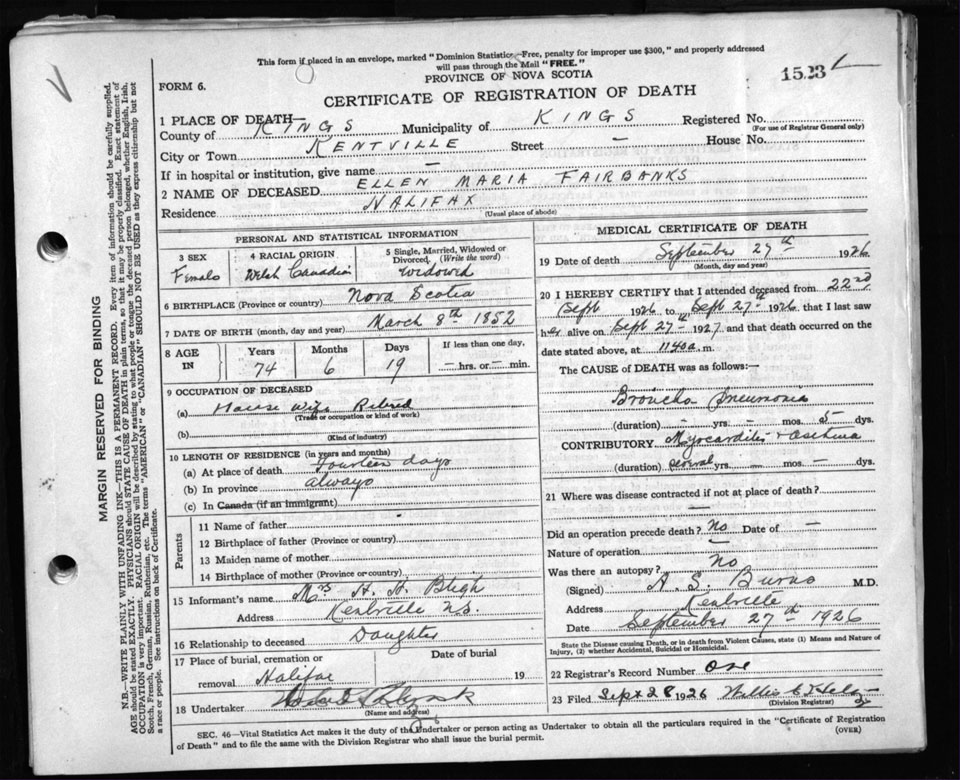 This form if placed in an envelope, marked "Dominion Statistics—Free, penalty for improper use $300," and properly addressed
will pass through the Mail "FREE."
PROVINCE OF NOVA SCOTIA
1523
FORM 6.
CERTIFICATE OF REGISTRATION OF DEATH
1 PLACE OF DEATH—
County of KINGS Municipality of KINGS Registered No.
(For use of Registrar General only)
City or Town KENTVILLE Street — House No.
If in hospital or institution, give name —
2 NAME OF DECEASED ELLEN MARIA FAIRBANKS
Residence HALIFAX
(Usual place of abode)
PERSONAL AND STATISTICAL INFORMATION
3 SEX
Female
4 RACIAL ORIGIN
Welsh Canadian
5 Single, Married, Widowed or
Divorced. (Write the word)
Widowed
6 BIRTHPLACE (Province or country) Nova Scotia
7 DATE OF BIRTH (month, day and year) March 8th 1852
8 AGE
IN
Years Months Days If less than one day,
74 6 19 — hrs. or — min.
9 OCCUPATION OF DECEASED
(a) House Wife Retired
(Trade or occupation or kind of work)
(b)
(Kind of industry)
10 LENGTH OF RESIDENCE (in years and months)
(a) At place of death Fourteen days
(b) In province always
(c) In Canada (if an immigrant)
Parents
11 Name of father
12 Birthplace of father (Province or country)
13 Maiden name of mother
14 Birthplace of mother (Province or country)
15 Informant's name Mrs H. H. Bligh
Address Kentville N.S.
16 Relationship to deceased Daughter
17 Place of burial, cremation or
removal Halifax
Date of burial
19
18 Undertaker
(Name and address)
MEDICAL CERTIFICATE OF DEATH
19 Date of death September 27th 1926
(Month, day and year)
20 I HEREBY CERTIFY that I attended deceased from 22nd
Sept 1926 to Sept 27th 1926, that I last saw
her alive on Sept 27th 1927, and that death occurred on
the date stated above, at 1140 a. m.
The CAUSE OF DEATH was as follows:—
Broncho Pneumonia
(duration) — yrs. — mos. 5 dys.
CONTRIBUTORY Myocarditis + Asthma
(duration) several yrs. — mos — dys.
21 Where was disease contracted if not at place of death?
—
Did an operation precede death? No Date of —
Nature of operation —
Was there an autopsy? No
(Signed) A. S. Burns M.D.
Address Kentville
Date September 27th 1926
State the Disease causing Death, or in death from Violent Causes, state (1) Means and Nature of
Injury, (2) whether Accidental, Suicidal or Homicidal.
22 Registrar's Record Number One
23 Filed Sept 28 1926
(Division Registrar)
SEC. 46—Vital Statistics Act makes it the duty of the Undertaker or person acting as Undertaker to obtain all the particulars required in the "Certificate of Registration
of Death" and to file the same with the Division Registrar who shall issue the burial permit.
(OVER)
MARGIN RESERVED FOR BINDING
N.B.—WRITE PLAINLY WITH UNFADING INK—THIS IS A PERMANENT RECORD. Every item of information should be carefully supplied.
AGE should be stated EXACTLY. PHYSICIANS should STATE CAUSE OF DEATH in plain terms, so that it may be properly classified. Exact statement of
OCCUPATION is very important. RACIAL ORIGIN will be described by stating to what people or tongue the deceased person belonged, whether English, Irish,
Scotch, French, German, Russian, Ruthenian, etc. The terms "AMERICAN" or "CANADIAN" SHOULD NOT BE USED as they express citizenship but not
a race or people. See instructions on back of Certificate.